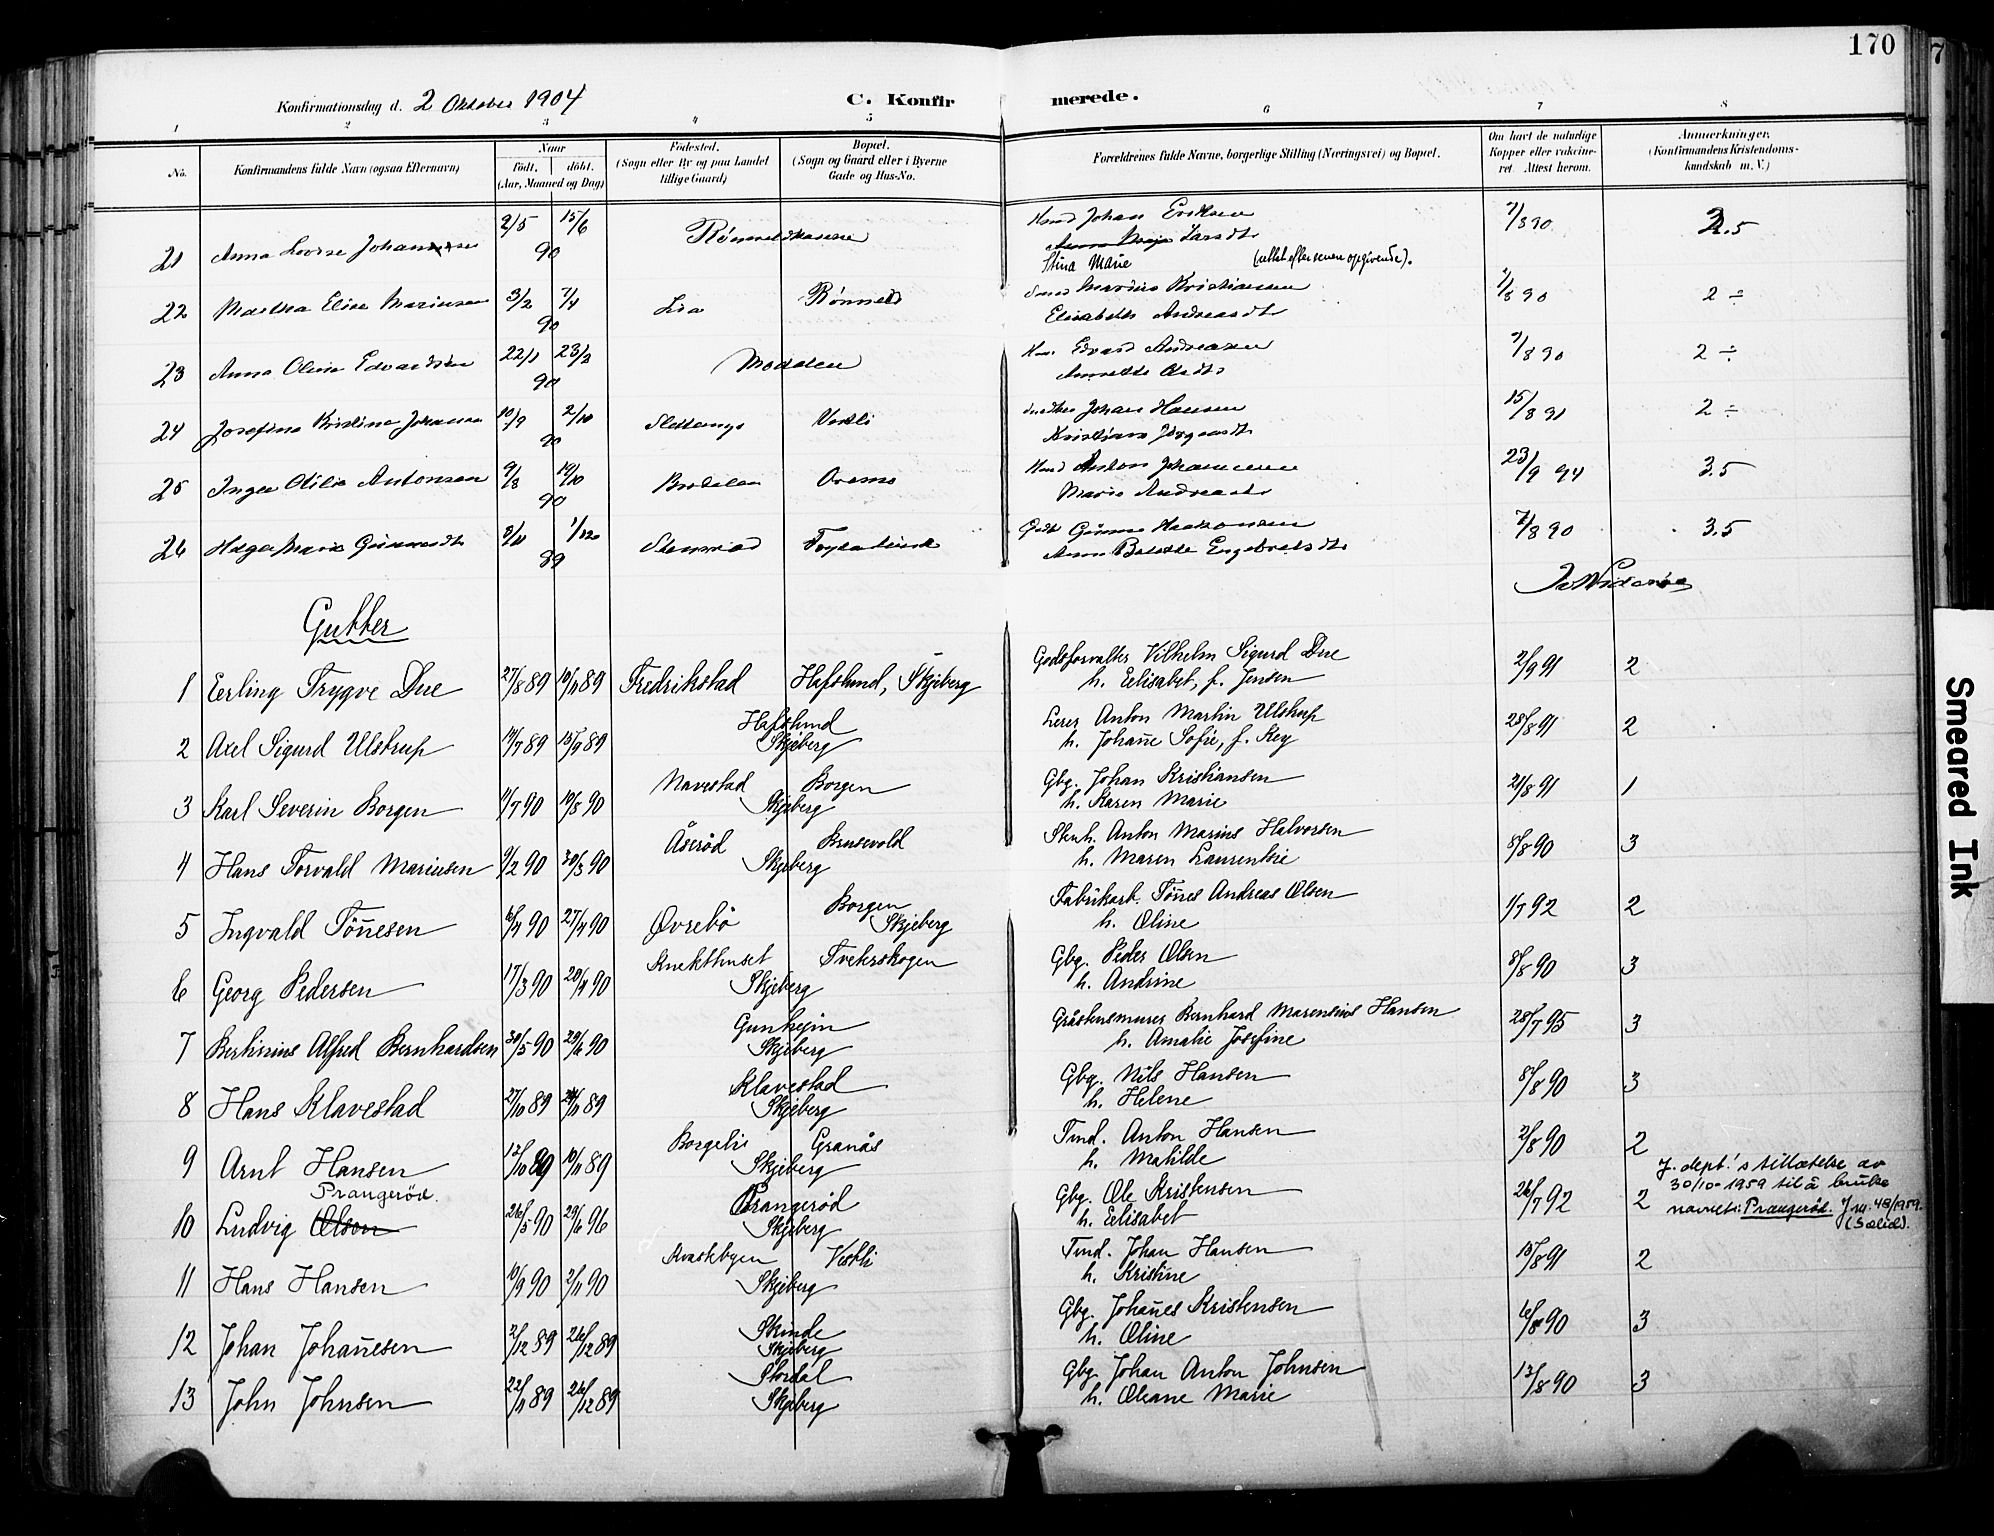 170
Konfirmationsdag d. 2 Oktober 1904
C. Konfirmerede.
1 2 3 4 5 6 7 8
No. Konfirmandens fulde Navn (ogsaa Efternavn)
Naar
Født, døbt.
(Aar, Maaned og Dag)
Fødested.
(Sogn eller By og paa Landet
tillige Gaard)
Bopæl.
(Sogn og Gaard eller i Byerne
Gade og Hus-No.
Forældrenes fulde Navne, borgerlige Stilling (Næringsvei) og Bopæl.
Om havt de naturlige
Kopper eller vakcine-
ret. Attest herom.
Anmærkninger,
(Konfirmandens Kristendoms-
kundskab m. V.)
21 Anna Lovise 2/5 15/6 90 Johan Eriksen
Larsdt
Stina Marie
7/8 90 2.5
22 Martha Elise Mariusen 3/2 7/4 90 Lia Marius Kristiansen
Elisabeth Andreasdt
7/8 90 2 ÷
23 Anna Oline Edvardsen 22/1 23/3 90 Edvard Andreasen
7/8 90 2 ÷
24 Josefine Kristine Johansen 10/9 2/10 90 Vestli Johan Hansen
Kristiane Jørgensdt
15/8 91 2 ÷
25 Inga Otilie Antonsen 9/8 19/10 90 Anton Johannesen
Marie Andreasdt
23/9 94 3.5
26 Helga Marie 8/11 1/12 89
Anne Engebretsdt
7/8 90 3.5
Gutter
1 Erling Trygve Due 27/8 89 10/11 89 Fredrikstad Hafslund, Skjeberg
Godsforvalter Vilhelm Sigurd Due
h. Elisabet, f. Jensen
2/9 91 2
2 Axel Sigurd Ulstrup 14/7 89 15/9 89 Hafslund
Skjeberg
Anton Martin Ulstrup
h. Johanne Sofie, f. Key
28/8 91 2
3 Karl Severin Borgen 11/7 90 10/8 90 Navestad Borgen
Skjeberg
Gbg. Johan Kristiansen
h. Karen Marie
21/8 91 1
4 Hans Torvald Mariusen 9/2 90 30/3 90 Åserød Brusevold
Skjeberg
Stenh. Anton Marius Halvorsen
h. Maren Laurentsie
8/8 90 3
5 Ingvald Tönnesen 6/4 90 27/4 90 Øvrebö Borgen
Skjeberg
Fabrikarb. Tönnes Andreas Olsen
h. Oline
1/7 92 2
6 Georg Pedersen 17/3 90 20/4 90 Knekthuset Tveterskogen
Skjeberg
Gbg. Peder Olsen
h. Andrine
8/8 90 3
7 Bertinius Alfred Bernhardsen 30/5 90 29/6 90 Gunheim
Skjeberg
Gråstensmurer Bernhard Marensius Hansen
h. Amalie Josefine
28/7 95 3
8 Hans Klavestad 27/10 89 24/11 89 Klavestad
Skjeberg
Gbg. Nils Hansen
h. Helene
8/8 90 3
9 Arnt Hansen 12/10 89 10/11 89 Borgelie Granås
Skjeberg
Tmd. Anton Hansen
h. Matilde
2/8 90 2
Prangerød.
10 Ludvig Olsen 26/5 90 29/6 96 Prangerød
Skjeberg
Gbg. Ole Kristensen
h. Elisabet
26/7 92 2
J. dept.'s tillatelse av
30/10-1959 til å bruke
navnet: Prangerød. J.nr. 48/1959.
11 Hans Hansen 10/9 90 2/11 90 Kvastebyen Vestli
Skjeberg
Tmd. Johan Hansen
h. Kristine
15/8 91 2
12 Johan Johannesen 2/12 89 26/12 89 Skinde
Skjeberg
Gbg. Johannes Kristensen
h. Oline
6/8 90 3
13 John Johnsen 22/11 89 26/12 89 Stordal
Skjeberg
Gbg Johan Anton Johnsen
h. Oleane Marie
13/8 90 3
Smeared Ink